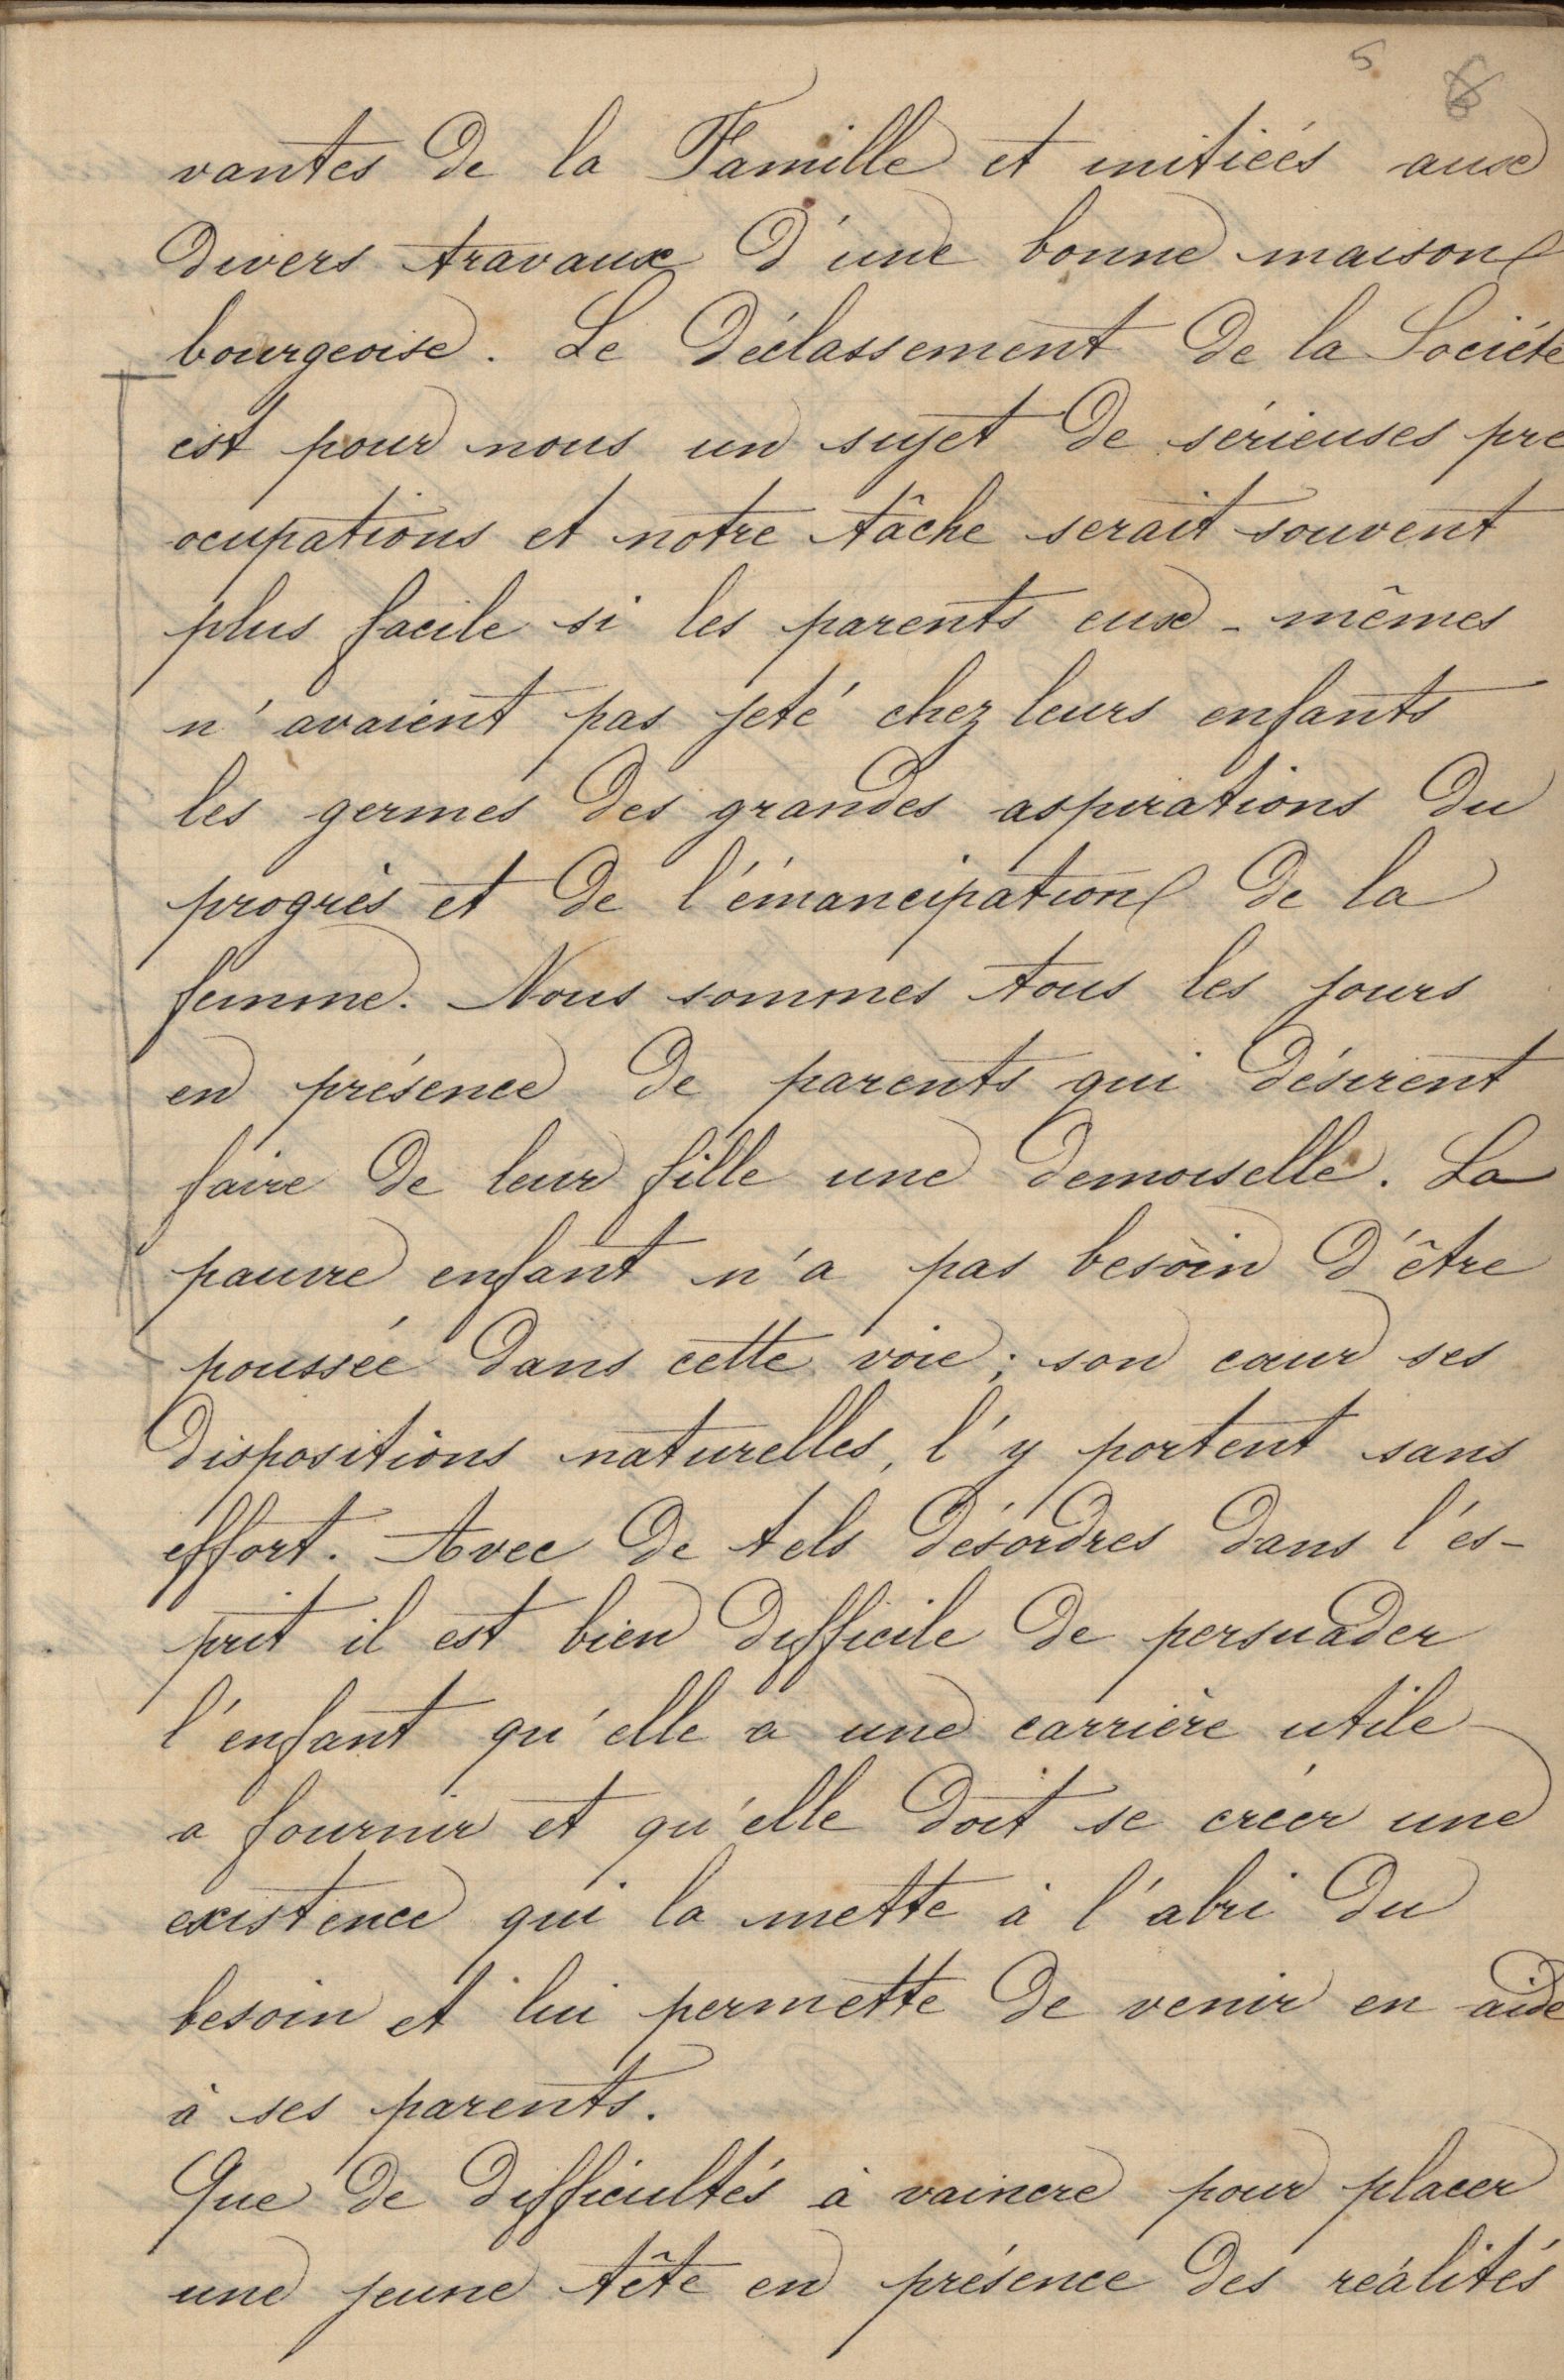 5 8
vantes de la Famille et initiées aux
divers travaux d'une bonne maison
bourgeoise. Le déclassement de la Société
est pour nous un sujet de sérieuses pré
ocupations et notre tâche serait souvent
plus facile si les parents eux-mêmes
n'avaient pas jeté chez leurs enfants
les germes des grandes aspirations du
progrès et de l'émancipation de la
femme. Nous sommes tous les jours
en présence de parents qui désirent
faire de leur fille une demoiselle. La
pauvre enfant n'a pas besoin d'être
poussée dans cette voie; son cœur ses
dispositions naturelles, l'y portent sans
effort. Avec de tels désordres dans l'es-
prit il est bien difficile de persuader
l'enfant qu'elle a une carrière utile
a fournir et qu'elle doit se créer une
existence qui la mette à l'abri du
besoin et lui permette de venir en aide
à ses parents.
Que de difficultés à vaincre pour placer
une jeune tête en présence des réalités